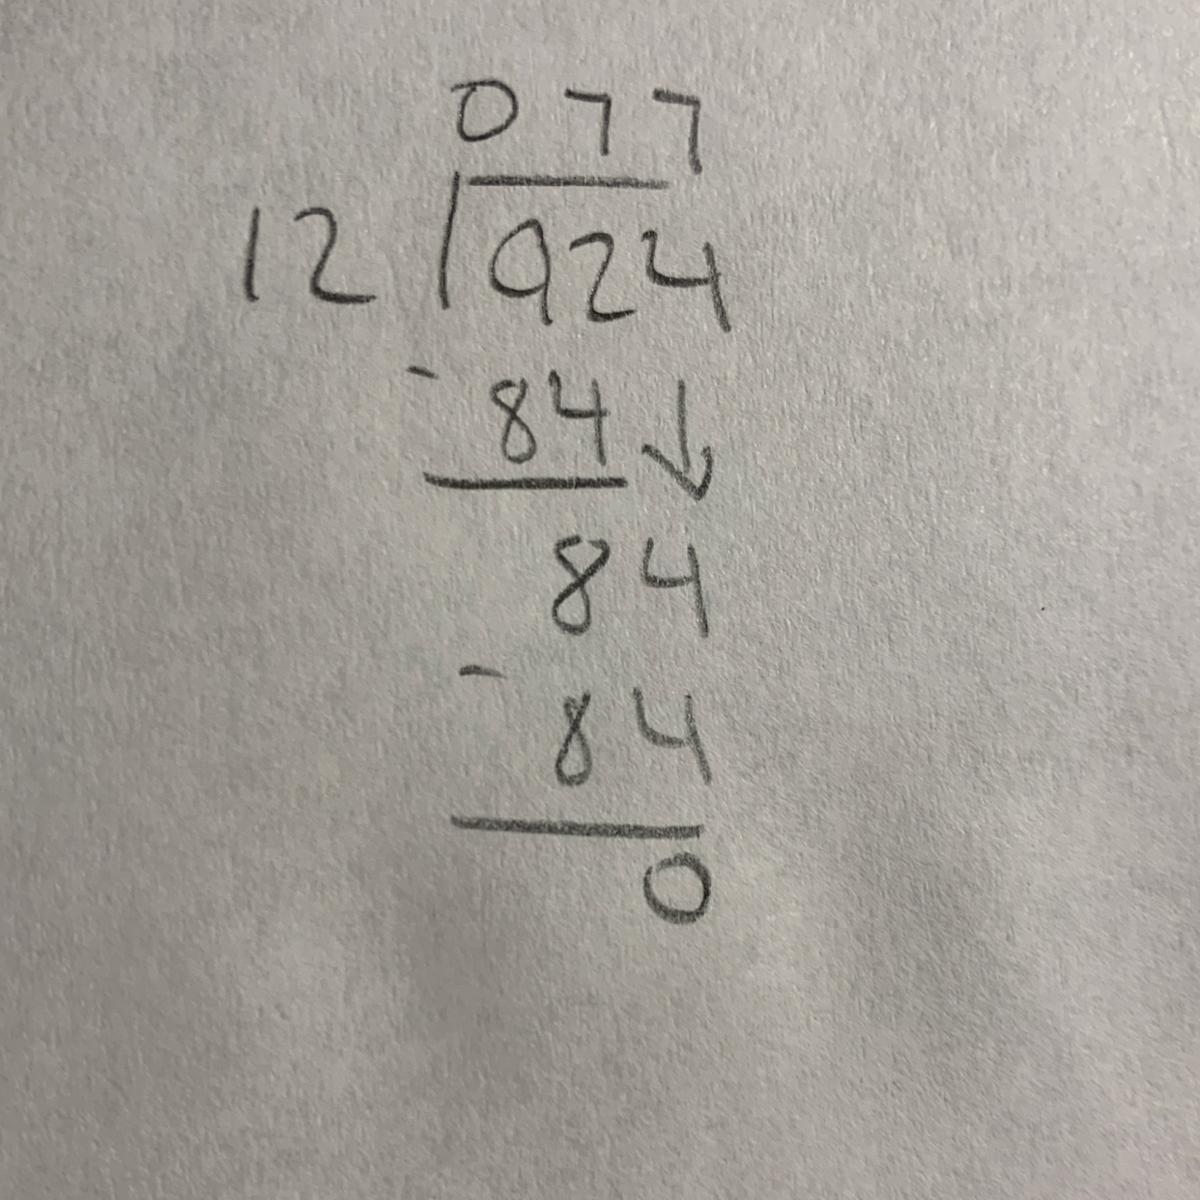 077
12 924
- 84 ↓
84
- 84
0